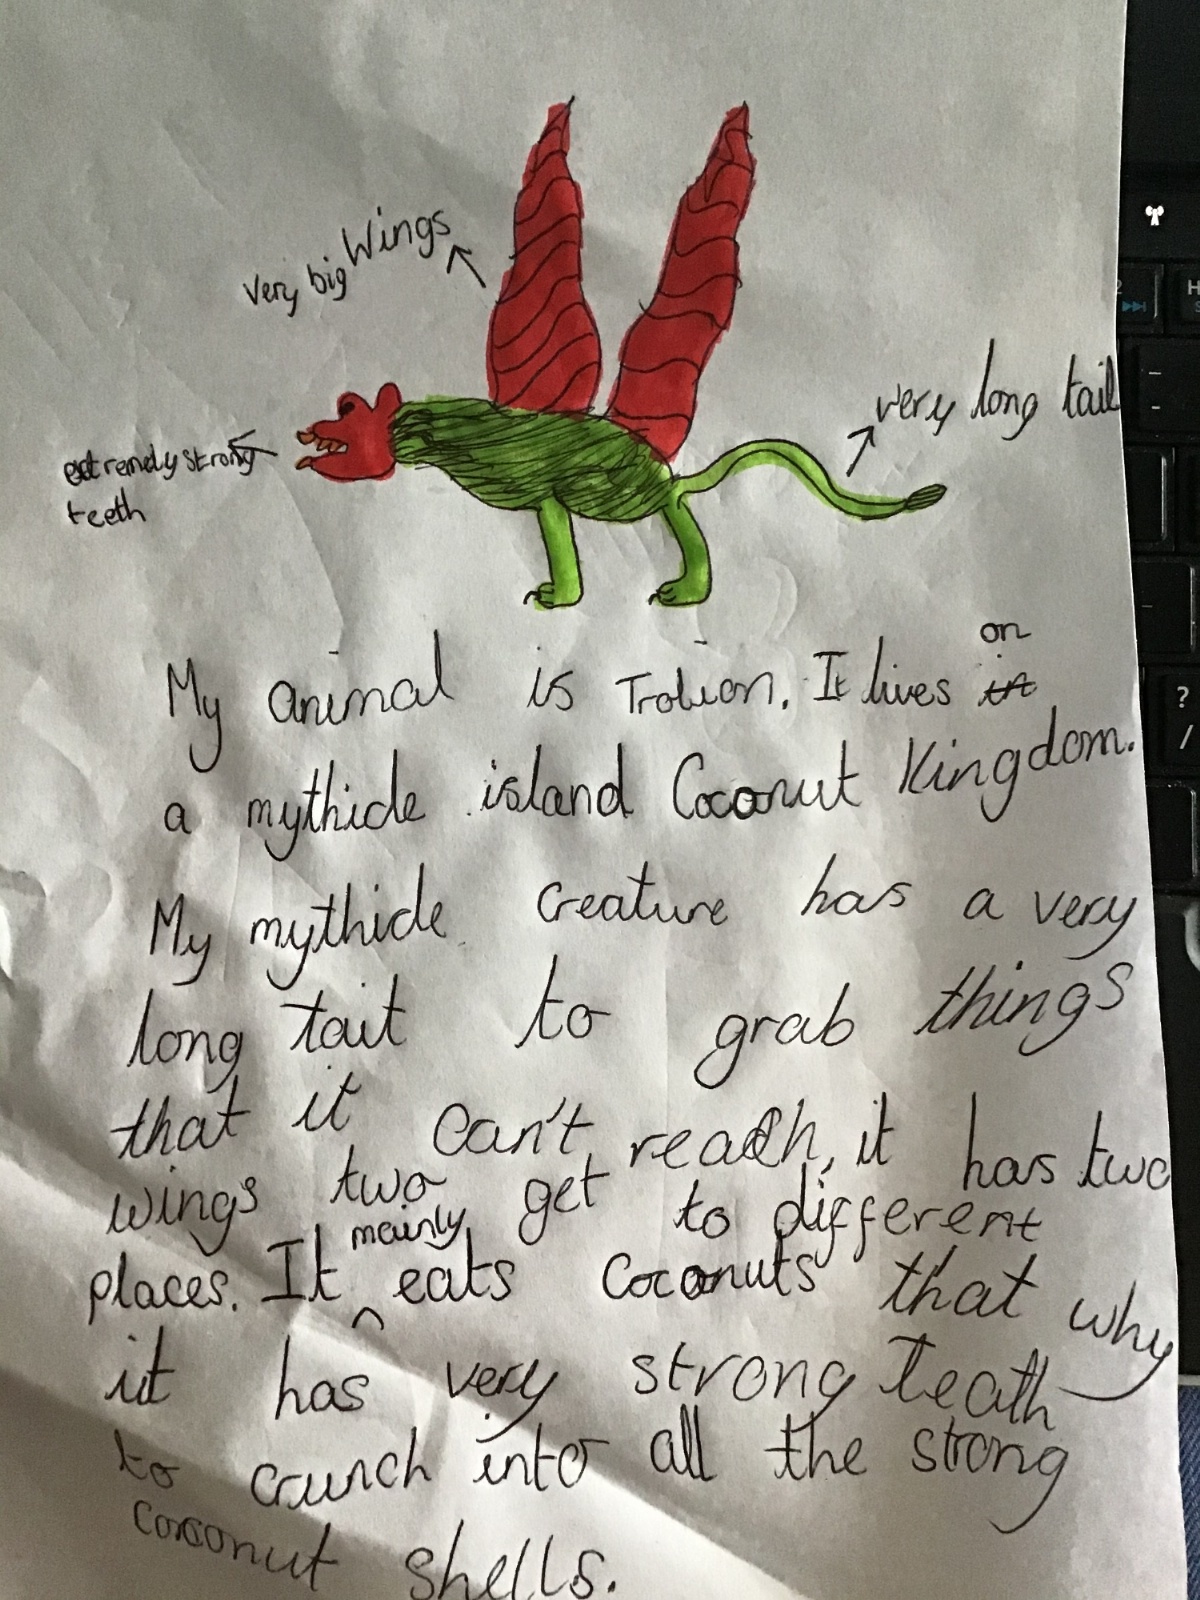 very big Wings
very long tail
extremely strong
teeth
My animal is Trolion. It lives on
a mythide island Coconut Kingdom.
My mythide creature has a very
long tait to grab things
that it can't reach, it has two
wings two get to different
places. It mainly eats coconuts that why
it has very strong teath
to crunch into all the strong
coconut shells.